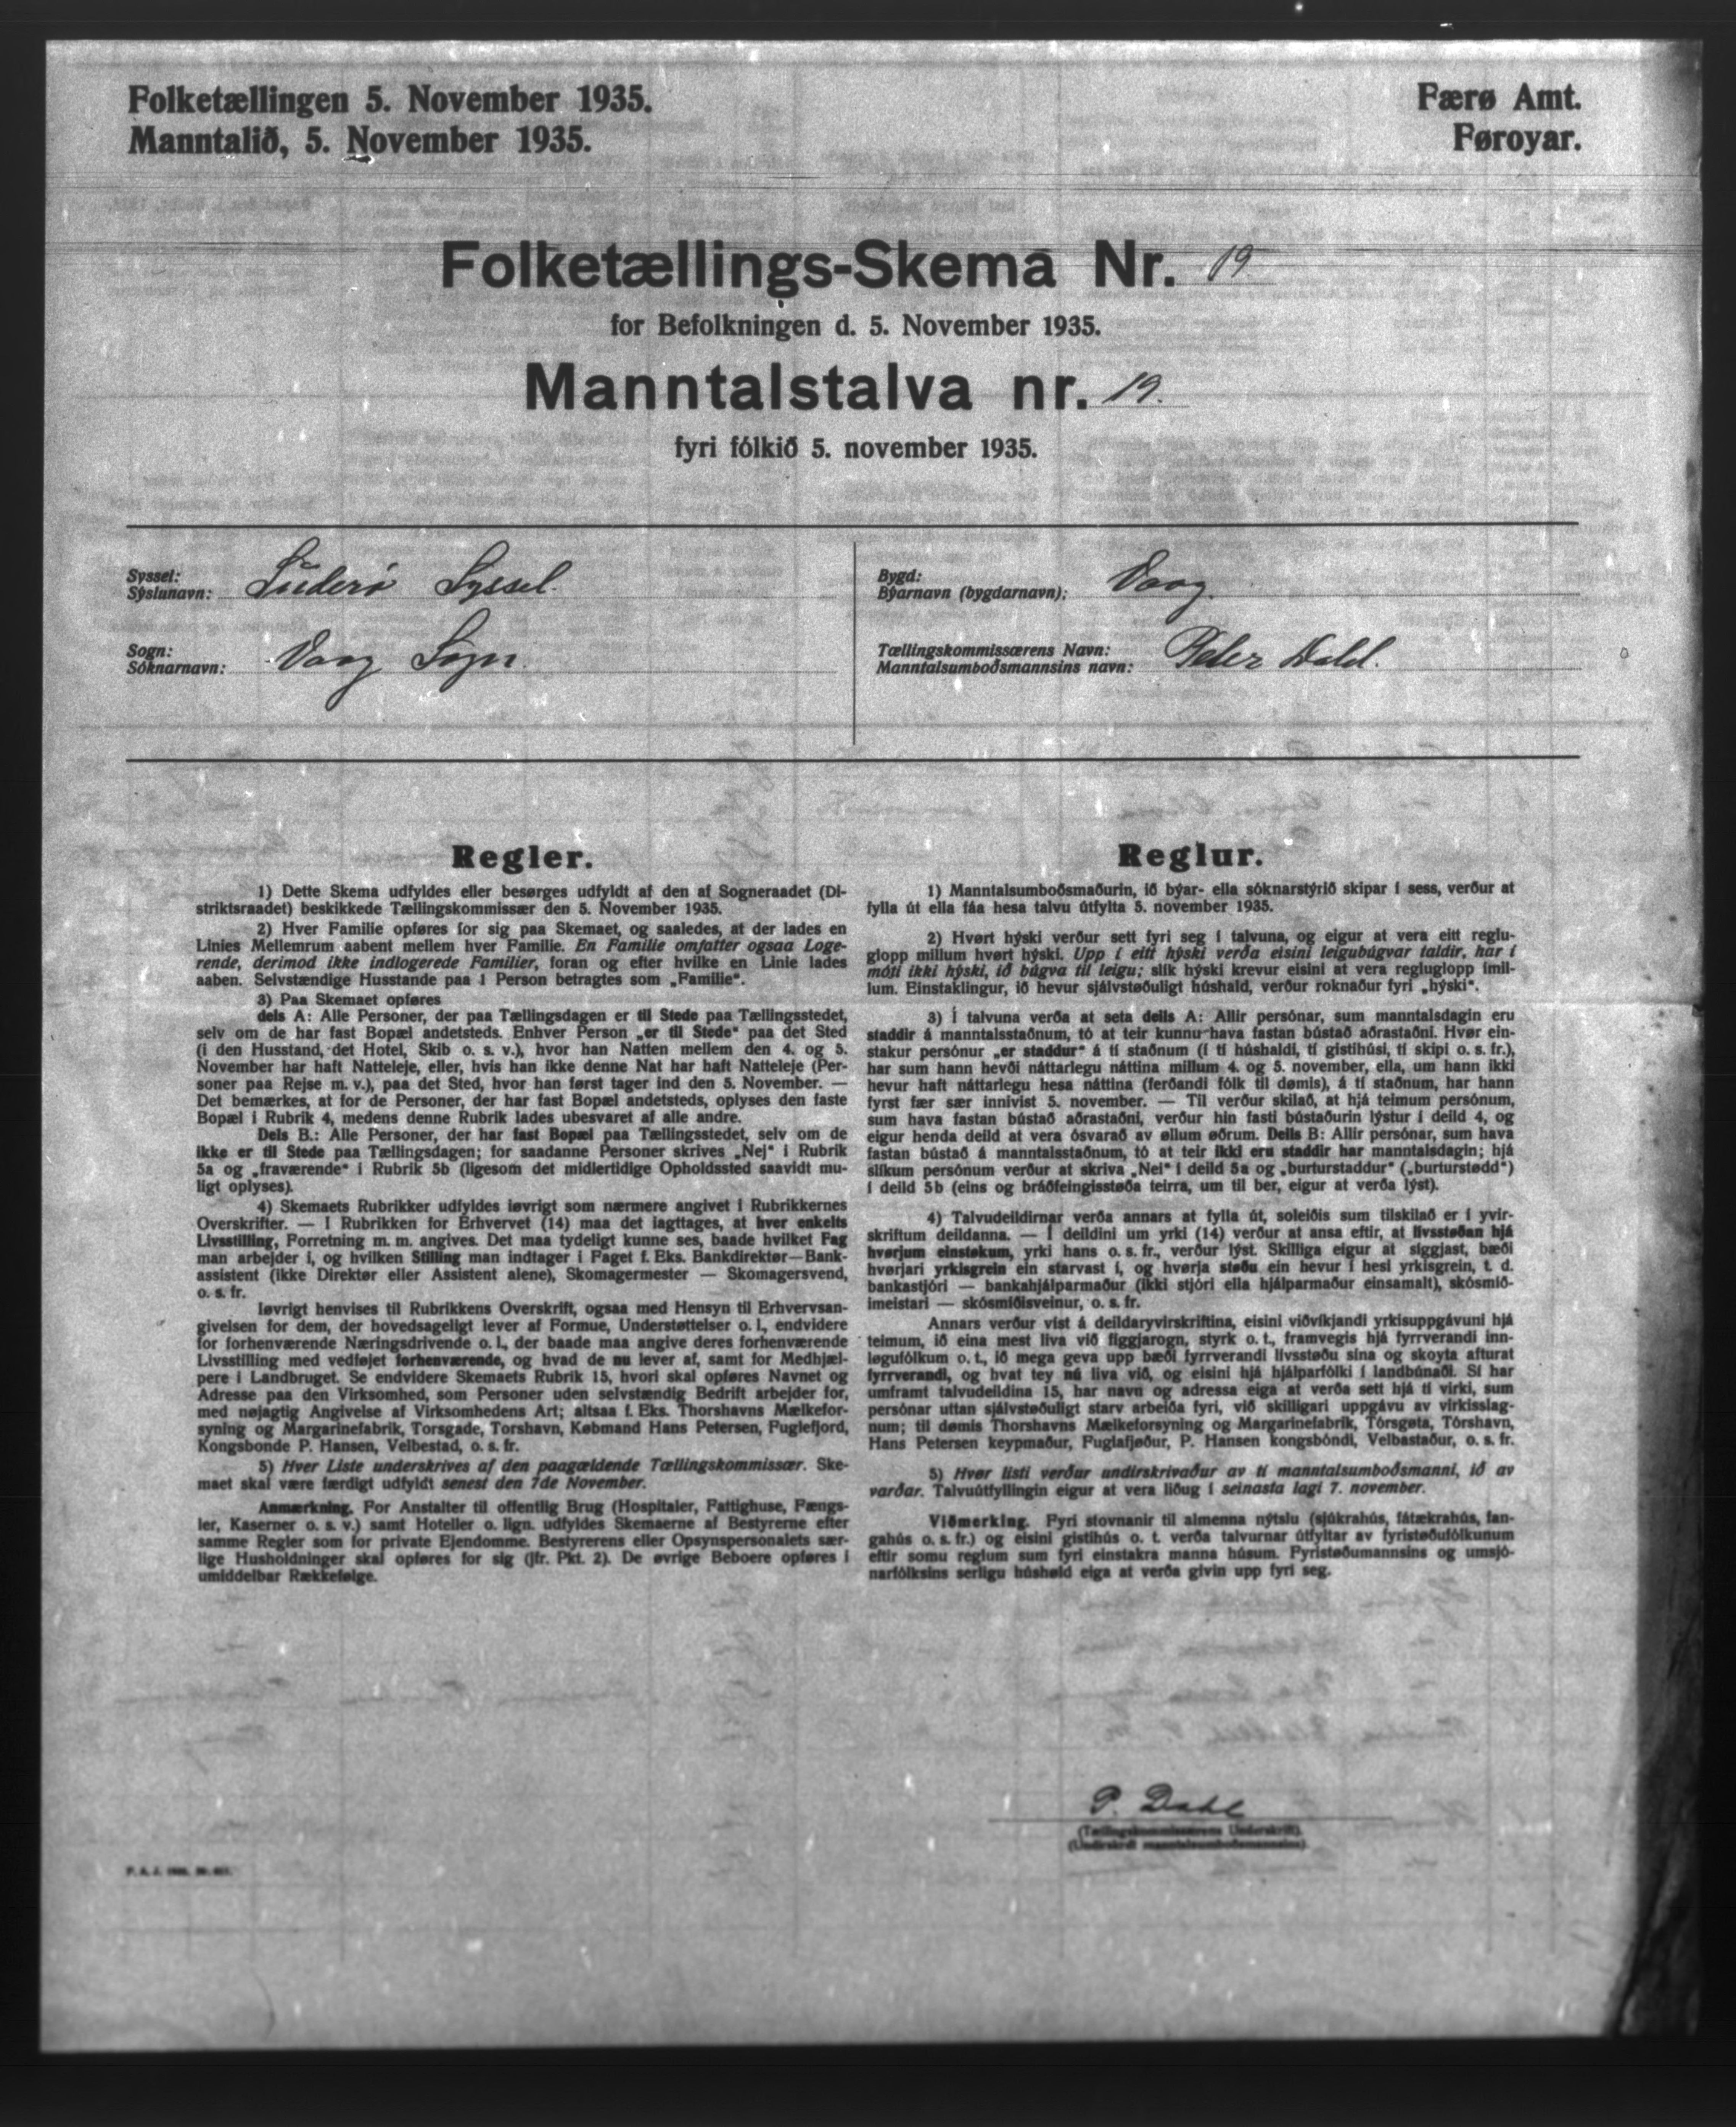 Folketællingen 5. November 1935.
Manntalið, 5. November 1935.
Færø Amt.
Føroyar.
Folketællings-Skema Nr. 19
for Befolkningen d. 5. November 1935.
Manntalstalva nr. 19.
fyri fólkið 5. november 1935.
Syssel:
Sýslunavn: Suderø Syssel.
Sogn:
Sóknarnavn: Vaag Sogn.
Bygd:
Býarnavn (bygdarnavn): Vaag.
Tællingskommissærens Navn:
Manntalsumboðsmannsins navn: Peter Dahl.
Regler.
1) Dette Skema udfyldes eller besørges udfyldt af den af Sogneraadet (Di-
striktsraadet) beskikkede Tællingskommissær den 5. November 1935.
2) Hver Familie opføres for sig paa Skemaet, og saaledes, at der lades en
Linies Mellemrum aabent mellem hver Familie. En Familie omfatter ogsaa Loge-
rende, derimod ikke indlogerede Familier, foran og efter hvilke en Linie lades
aaben. Selvstændige Husstande paa 1 Person betragtes som „Familie“.
3) Paa Skemaet opføres
dels A: Alle Personer, der paa Tællingsdagen er til Stede paa Tællingsstedet,
selv om de har fast Bopæl andetsteds. Enhver Person „er til Stede“ paa det Sted
(i den Husstand, det Hotel, Skib o. s. v.), hvor han Natten mellem den 4. og 5.
November har haft Natteleje, eller, hvis han ikke denne Nat har haft Natteleje (Per-
soner paa Rejse m. v.), paa det Sted, hvor han først tager ind den 5. November. —
Det bemærkes, at for de Personer, der har fast Bopæl andetsteds, oplyses den faste
Bopæl i Rubrik 4, medens denne Rubrik lades ubesvaret af alle andre.
Dels B.: Alle Personer, der har fast Bopæl paa Tællingsstedet, selv om de
ikke er til Stede paa Tællingsdagen; for saadanne Personer skrives „Nej“ i Rubrik
5a og „fraværende“ i Rubrik 5b (ligesom det midlertidige Opholdssted saavidt mu-
ligt oplyses).
4) Skemaets Rubrikker udfyldes iøvrigt som nærmere angivet i Rubrikkernes
Overskrifter. — I Rubrikken for Erhvervet (14) maa det iagttages, at hver enkelts
Livsstilling, Forretning m. m. angives. Det maa tydeligt kunne ses, baade hvilket Fag
man arbejder i, og hvilken Stilling man indtager i Faget f. Eks. Bankdirektør—Bank-
assistent (ikke Direktør eller Assistent alene), Skomagermester — Skomagersvend,
o. s. fr.
Iøvrigt henvises til Rubrikkens Overskrift, ogsaa med Hensyn til Erhvervsan-
givelsen for dem, der hovedsageligt lever af Formue, Understøttelser o. l., endvidere
for forhenværende Næringsdrivende o. l., der baade maa angive deres forhenværende
Livsstilling med vedføjet forhenværende, og hvad de nu lever af, samt for Medhjæl-
pere i Landbruget. Se endvidere Skemaets Rubrik 15, hvori skal opføres Navnet og
Adresse paa den Virksomhed, som Personer uden selvstændig Bedrift arbejder for,
med nøjagtig Angivelse af Virksomhedens Art; altsaa f. Eks. Thorshavns Mælkefor-
syning og Margarinefabrik, Torsgade, Torshavn, Købmand Hans Petersen, Fuglefjord,
Kongsbonde P. Hansen, Velbestad, o. s. fr.
5) Hver Liste underskrives af den paagældende Tællingskommissær. Ske-
maet skal være færdigt udfyldt senest den 7de November.
Anmærkning. For Anstalter til offentlig Brug (Hospitaler, Fattighuse, Fængs-
ler, Kaserner o. s. v.) samt Hoteller o. lign. udfyldes Skemaerne af Bestyrerne efter
samme Regler som for private Ejendomme. Bestyrerens eller Opsynspersonalets sær-
lige Husholdninger skal opføres for sig (jfr. Pkt. 2). De øvrige Beboere opføres i
umiddelbar Rækkefølge.
Reglur.
1) Manntalsumboðsmaðurin, ið býar- ella sóknarstýrið skipar í sess, verður at
fylla út ella fáa hesa talvu útfylta 5. november 1935.
2) Hvørt hýski verður sett fyri seg í talvuna, og eigur at vera eitt reglu-
glopp millum hvørt hýski. Upp í eitt hýski verða eisini leigubúgvar taldir, har í
móti ikki hýski, ið búgva til leigu; slík hýski krevur eisini at vera regluglopp ímil-
lum. Einstaklingur, ið hevur sjálvstøðuligt húshald, verður roknaður fyri „hýski“.
3) Í talvuna verða at seta deils A: Allir persónar, sum manntalsdagin eru
staddir á manntalsstaðnum, tó at teir kunnu hava fastan bústað aðrastaðni. Hvør ein-
stakur persónur „er staddur“ á tí staðnum (í tí húshaldi, tí gistihúsi, tí skipi o. s. fr.),
har sum hann hevði náttarlegu náttina millum 4. og 5. november, ella, um hann ikki
hevur haft náttarlegu hesa náttina (ferðandi fólk til dømis), á tí staðnum, har hann
fyrst fær sær innivist 5. november. — Til verður skilað, at hjá teimum persónum,
sum hava fastan bústað aðrastaðni, verður hin fasti bústaðurin lýstur í deild 4, og
eigur henda deild at vera ósvarað av øllum øðrum. Deils B: Allir persónar, sum hava
fastan bústað á manntalsstaðnum, tó at teir ikki eru staddir har manntalsdagin; hjá
slíkum persónum verður at skriva „Nei“ í deild 5a og „burturstaddur“ („burturstødd“)
í deild 5b (eins og bráðfeingisstøða teirra, um til ber, eigur at verða lýst).
4) Talvudeildirnar verða annars at fylla út, soleiðis sum tilskilað er í yvir-
skriftum deildanna. — Í deildini um yrki (14) verður at ansa eftir, at livsstøðan hjá
hvørjum einstøkum, yrki hans o. s. fr., verður lýst. Skilliga eigur at siggjast, bæði
hvørjari yrkisgrein ein starvast í, og hvørja støðu ein hevur í hesi yrkisgrein, t. d.
bankastjóri — bankahjálparmaður (ikki stjóri ella hjálparmaður einsamalt), skósmið-
imeistari — skósmiðisveinur, o. s. fr.
Annars verður víst á deildaryvirskriftina, eisini viðvíkjandi yrkisuppgávuni hjá
teimum, ið eina mest liva við figgjarogn, styrk o. t., framvegis hjá fyrrverandi inn-
løgufólkum o. t., ið mega geva upp bæði fyrrverandi livsstøðu sina og skoyta afturat
fyrrverandi, og hvat tey nú liva við, og eisini hjá hjálparfólki í landbúnaði. Sí har
umframt talvudeildina 15, har navn og adressa eiga at verða sett hjá tí virki, sum
persónar uttan sjálvstøðuligt starv arbeiða fyri, við skilligari uppgávu av virkisslag-
num; til dømis Thorshavns Mælkeforsyning og Margarinefabrik, Tórsgøta, Tórshavn,
Hans Petersen keypmaður, Fuglafjøður, P. Hansen kongsbóndi, Velbastaður, o. s. fr.
5) Hvør listi verður undirskrivaður av tí manntalsumboðsmanni, ið av
varðar. Talvuútfyllingin eigur at vera liðug í seinasta lagi 7. november.
Viðmerking. Fyri stovnanir til almenna nýtslu (sjúkrahús, fátækrahús, fan-
gahús o. s. fr.) og eisini gistihús o. t. verða talvurnar útfyltar av fyristøðufólkunum
eftir somu reglum sum fyri einstakra manna húsum. Fyristøðumannsins og umsjó-
narfólksins serligu húshøld eiga at verða givin upp fyri seg.
P. Dahl
(Tællingskommissærens Underskrift).
(Undirskrift manntalsumboðsmannsins).